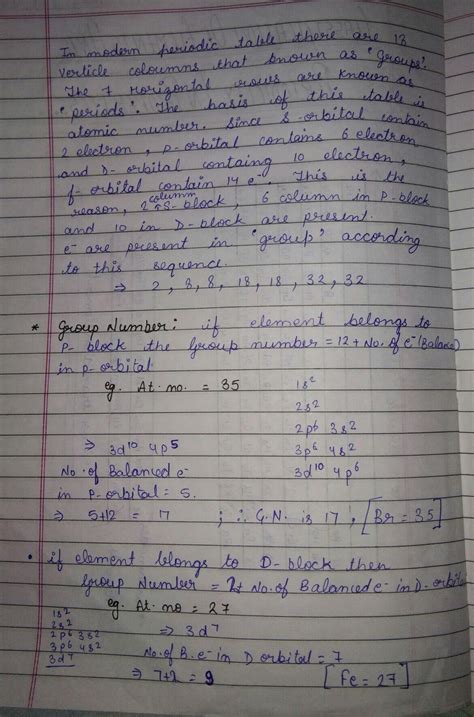 In modern periodic table there are 18
verticle coloumns that known as "groups".
The 7 Horizontal rows are known as
"periods". The basis of this table is
atomic number. Since S-orbital contain
2 electron, p-orbital contains 6 electron
and D-orbital containg 10 electron,
f-orbital contain 14 e⁻. This is the
reason, 2 column in S-block, 6 column in P-block
and 10 in D-block are present.
e⁻ are present in "group" according
to this sequence.
⇒ 2, 8, 8, 18, 18, 32, 32
* Group Number: if element belongs to
P-block the Group number = 12 + No. of e⁻ (Balance)
in p-orbital
eg. At. no. = 35
1s²
2s²
2p⁶ 3s²
3p⁶ 4s²
3d¹⁰ 4p⁶
⇒ 3d¹⁰ 4p⁵
No. of Balanced e⁻
in P-orbital = 5.
⇒ 5+12 = 17 ; ∴ G.N. is 17, [Br = 35]
• if element belongs to D-block then
Group Number = 2+ No. of Balanced e⁻ in D-orbital
eg. At. no = 27
1s²
2s²
2p⁶ 3s²
3p⁶ 4s²
3d⁷
⇒ 3d⁷
No. of B. e⁻ in D orbital = 7
⇒ 7+2 = 9 [Fe = 27]